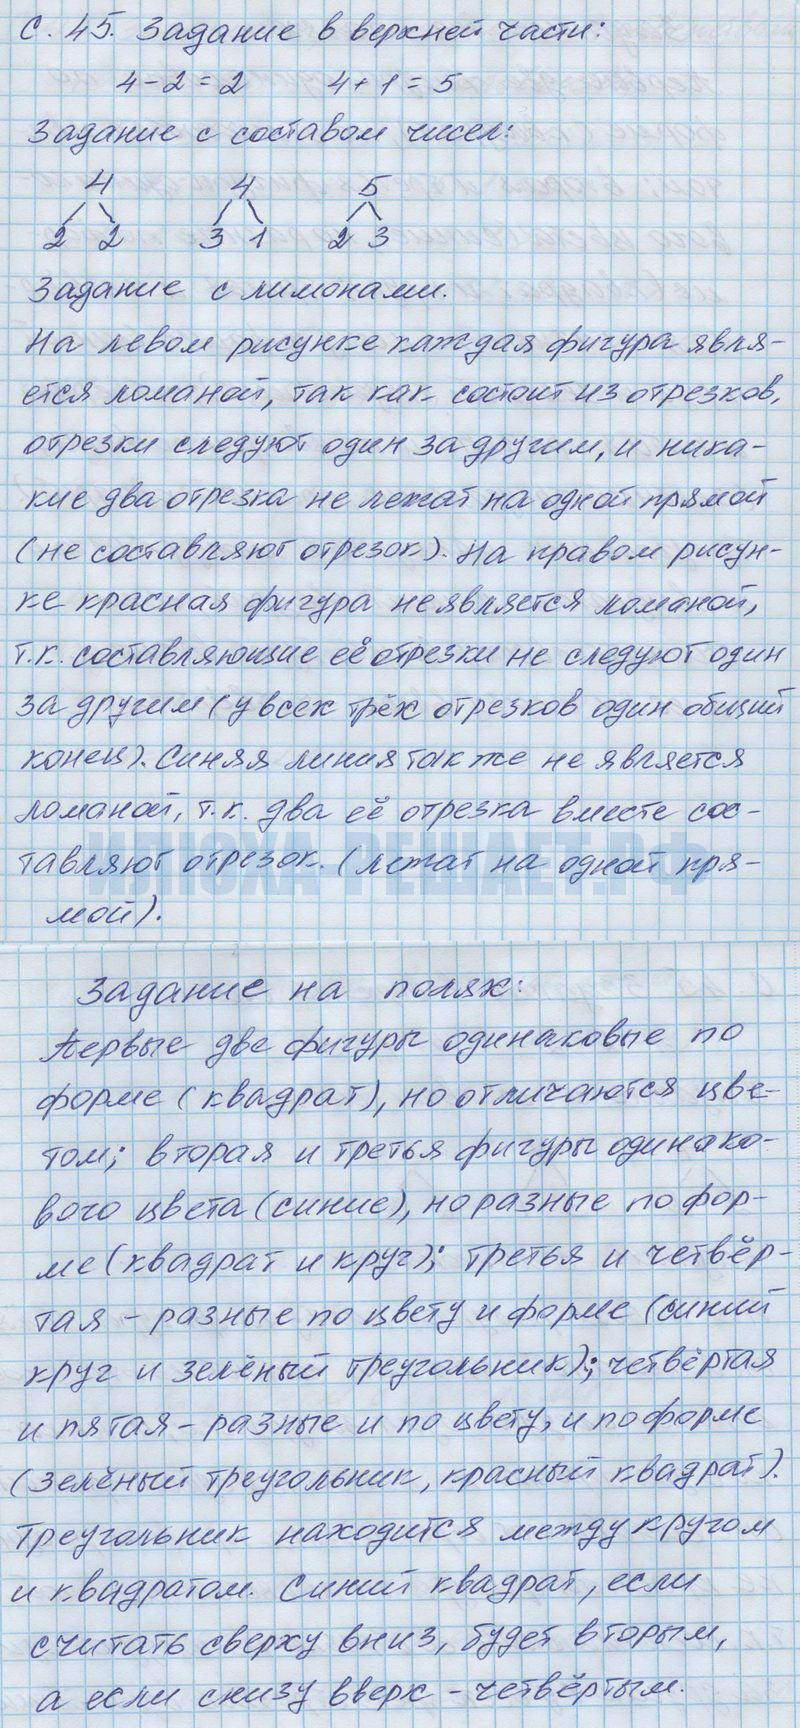 с. 45. Задание в верхней части:
4-2=2 4+1=5
Задание с составом чисел:
4 4 5
2 2 3 1 2 3
Задание с лимонами.
На левом рисунке каждая фигура явля-
ется ломаной, так как состоит из отрезков,
отрезки следуют один за другим, и ника-
кие два отрезка не лежат на одной прямой
(не составляют отрезок). На правом рисун-
ке красная фигура не является ломаной,
т.к. составляющие её отрезки не следуют один
за другим (у всех трёх отрезков один общий
конец). Синяя линия также не является
ломаной, т.к. два её отрезка вместе сос-
тавляют отрезок. (лежат на одной пря-
мой).
ИЛЮХА РЕШАЕТ.РФ
Задание на полях:
Первые две фигуры одинаковые по
форме (квадрат), но отличаются цве-
том; вторая и третья фигуры одинако-
вого цвета (синие), но разные по фор-
ме (квадрат и круг); третья и четвёр-
тая - разные по цвету и форме (синий
круг и зелёный треугольник); четвёртая
и пятая - разные и по цвету, и по форме
(зелёный треугольник, красный квадрат).
Треугольник находится между кругом
и квадратом. Синий квадрат, если
считать сверху вниз, будет вторым,
а если снизу вверх - четвёртым.